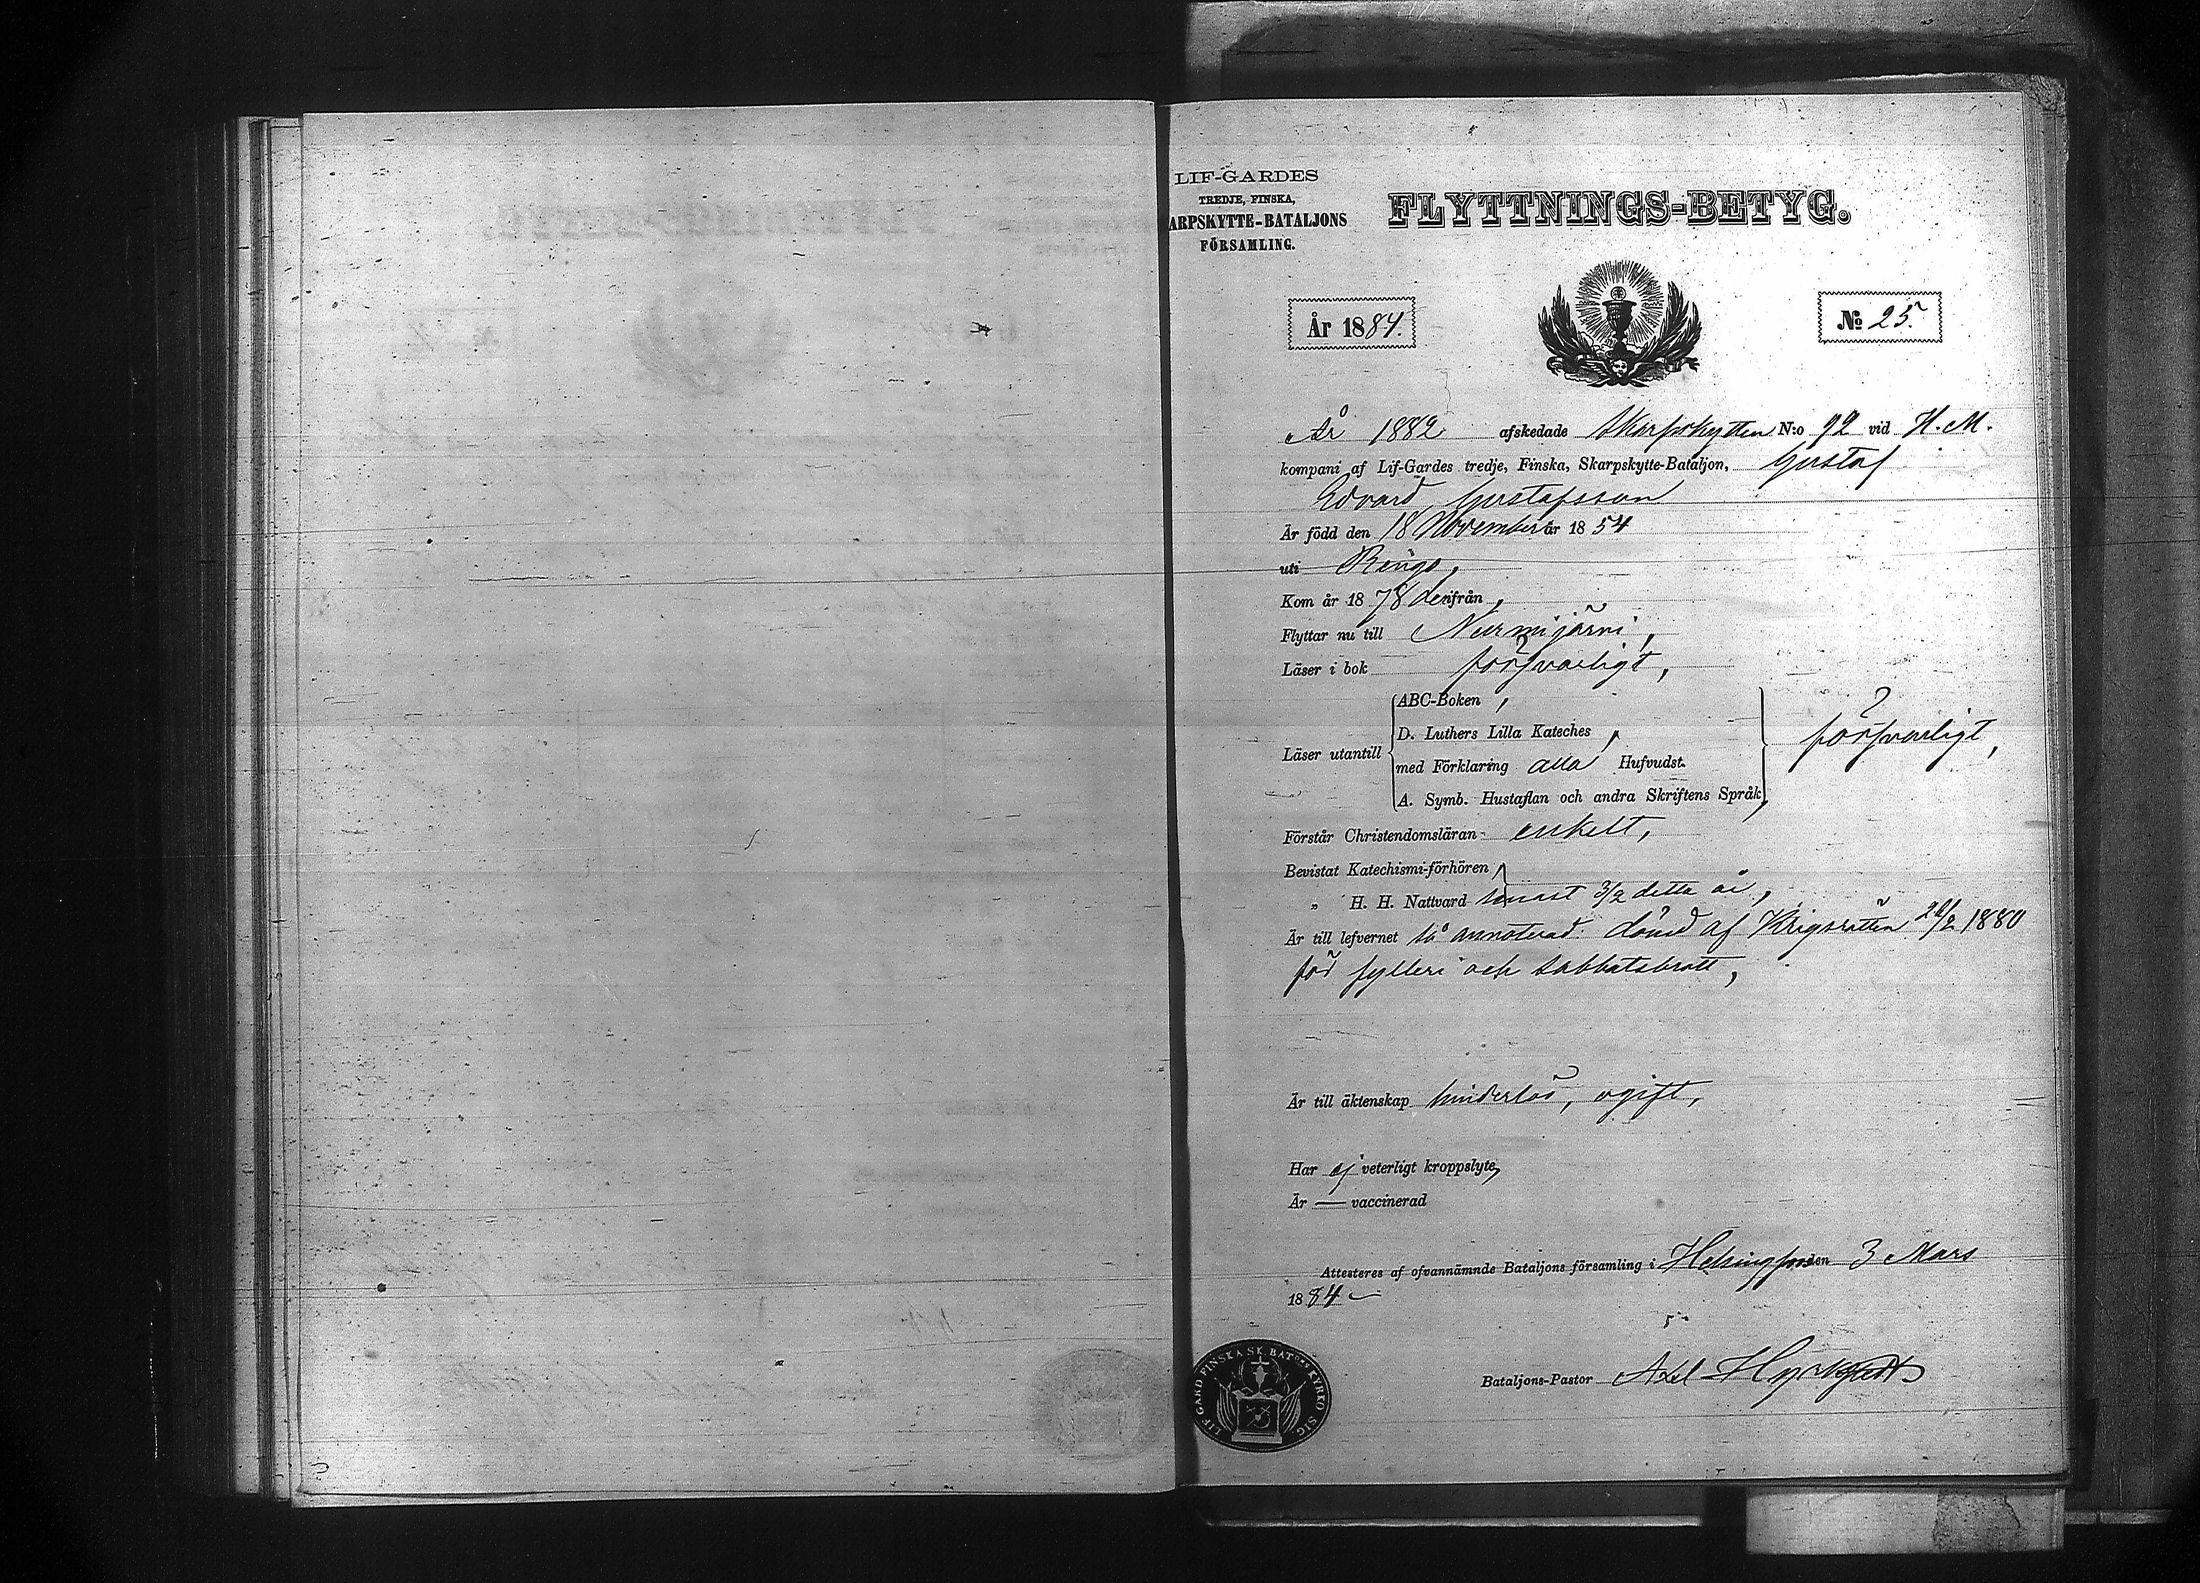 LIF-GARDES
TREDJE, FINSKA,
ARPSKYTTE-BATALJONS
FÖRSAMLING.
FLYTTNINGS-BETYG.
År 1884.
No 25.
År 1882 afskedade Skarpskytten N:o 92 vid H. M.
kompani af Lif-Gardes tredje, Finska, Skarpskytte-Bataljon, Gustaf
Edvard Gustafsson
Är född den 18 November år 1854
uti Rengo,
Kom år 1878 derifrån,
Flyttar nu till Nurmijärvi,
Läser i bok försvarligt,
Läser utantill
ABC-Boken,
D. Luthers Lilla Kateches,
med Förklaring alla Hufvudst.
A. Symb. Hustaflan och andra Skriftens Språk,
försvarligt,
Förstår Christendomsläran enkelt,
Bevistat Katechismi-förhören
„ H. H. Nattvard senast 3/2 detta år,
Är till lefvernet så annoterad: dömd af Krigsrätten /2 1880
för fylleri och sabbatsbrott,
Är till äktenskap hinderlös, ogift,
Har ej veterligt kroppslyte,
Är — vaccinerad
Attesteres af ofvannämnde Bataljons församling i Helsingfors den 3 Mars
1884
Bataljons-Pastor Axel
LIF GARD FINSKA SK. BAT:ONS KYRKO SIG.